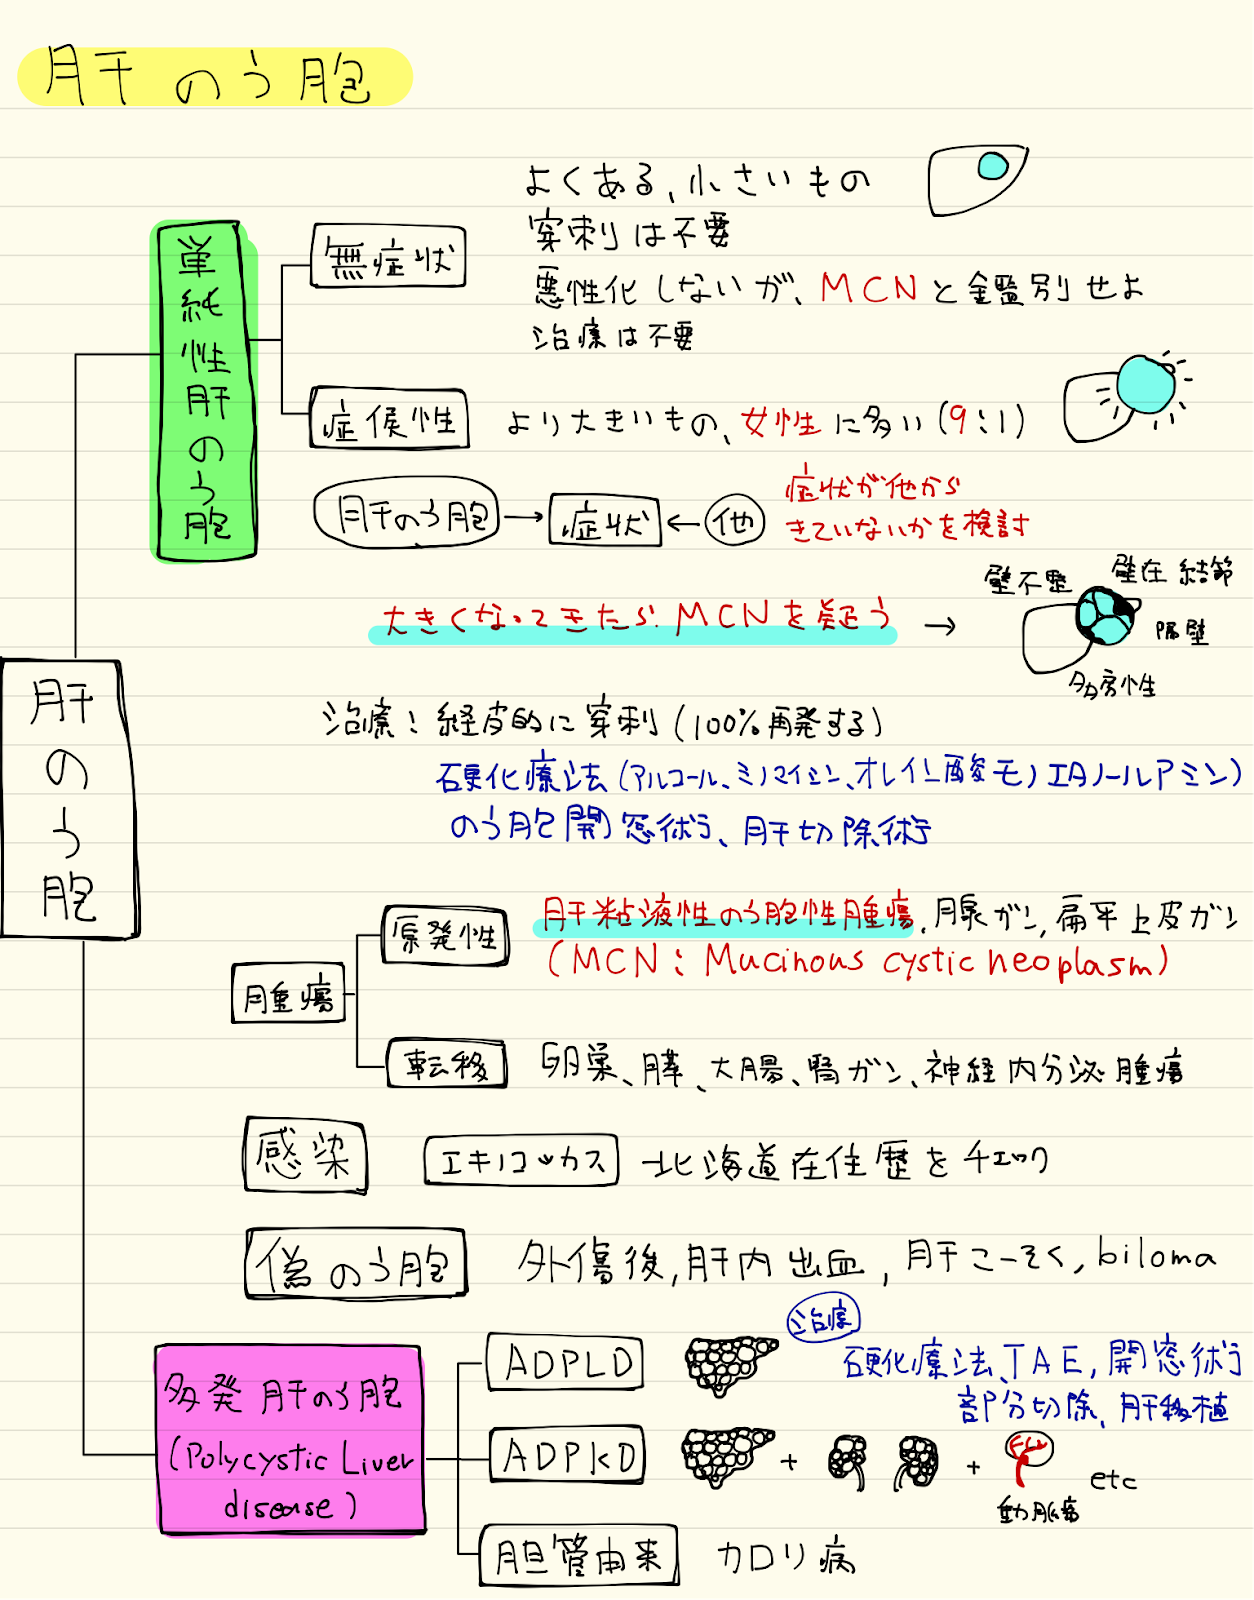 肝のう胞
よくある、小さいもの
穿刺は不要
無症状
悪性化しないが、MCNと鑑別せよ
治療は不要
単純性肝のう胞
症候性
より大きいもの、女性に多い(9:1)
肝のう胞→症状←他
症状が他から
きていないかを検討
大きくなってきたらMCNを疑う→
壁不整
壁在結節
隔壁
多房性
肝のう胞
治療:経皮的に穿刺(100%再発する)
硬化療法(アルコール、ミノマイシン、オレイン酸モノエタノールアミン)
のう胞開窓術、肝切除術
腫瘍
原発性
肝粘液性のう胞性腫瘍、腺ガン,扁平上皮ガン
(MCN:Mucinous cystic neoplasm)
転移
卵巣、膵、大腸、腎ガン、神経内分泌腫瘍
感染
エキノコッカス
北海道在住歴をチェック
偽のう胞
外傷後,肝内出血,肝こーそく,biloma
多発肝のう胞
(Polycystic Liver
disease)
ADPLD
治療
硬化療法、TAE,開窓術
部分切除、肝移植
ADPKD
+
+
etc
動脈瘤
胆管由来
カロリ病